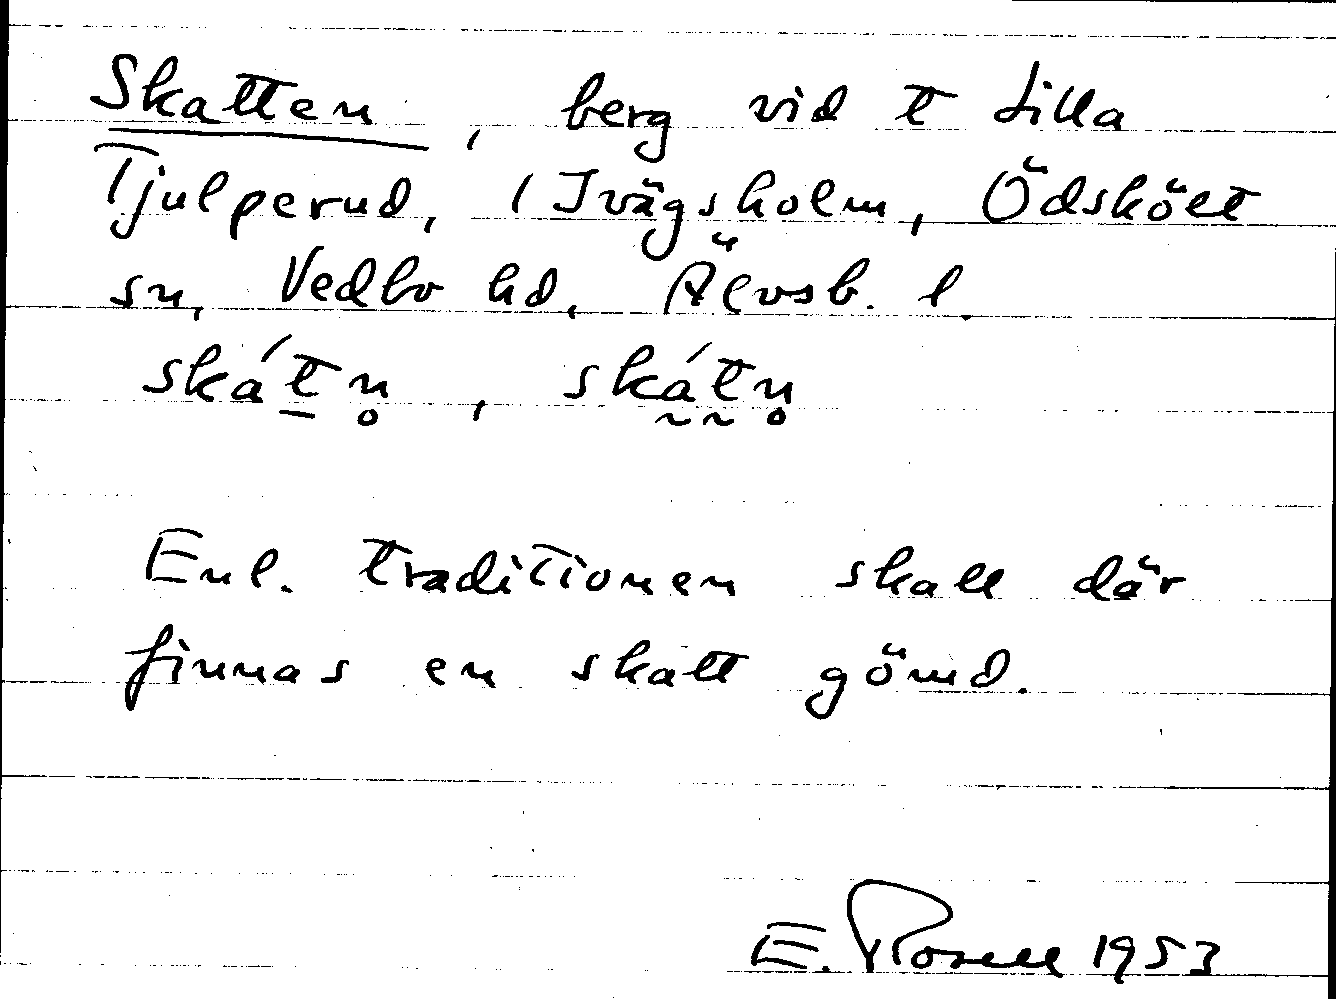 Skatten, berg vid t Lilla
Tjulperud, 1 Ivägsholm, Ödskölt
sn, Vedbo hd, Älvsb. l.
skát̠n̥, ská̰t̰n̥
Enl. traditionen skall där
finnas en skatt gömd.
E. Rosell 1953